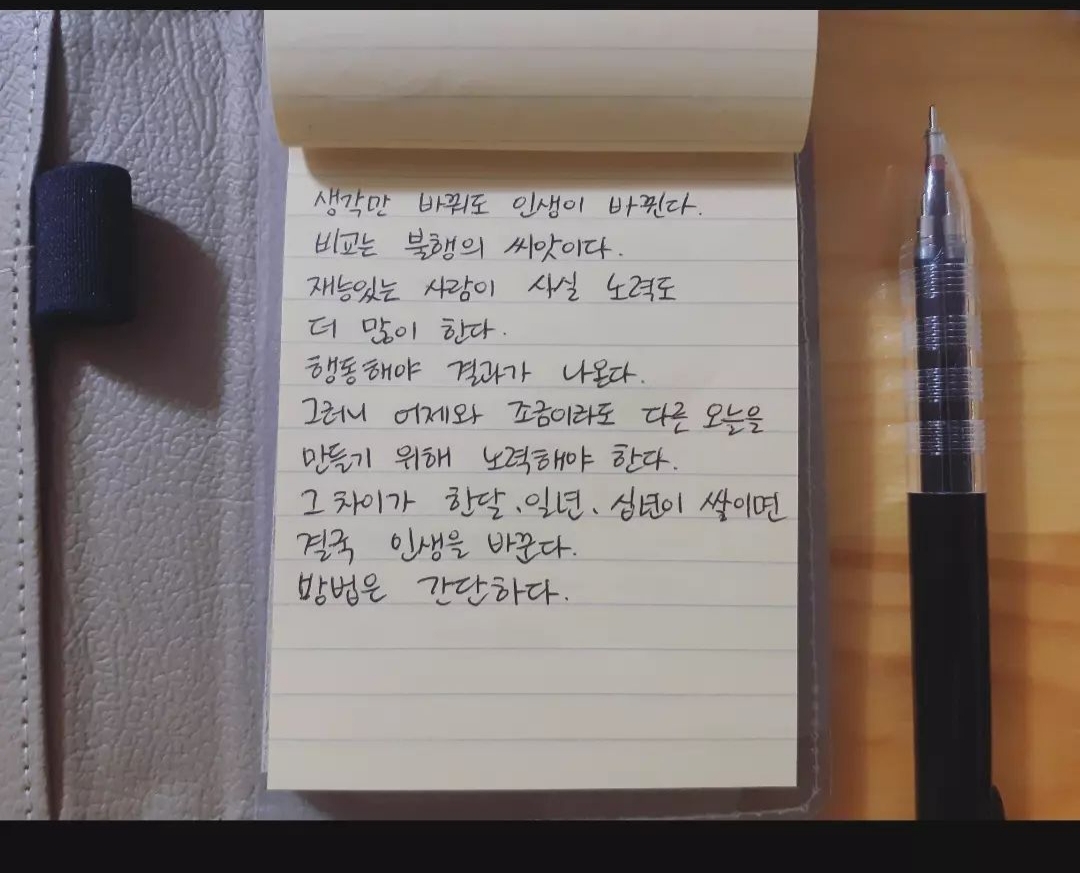 생각만 바꿔도 인생이 바뀐다.
비교는 불행의 씨앗이다.
재능있는 사람이 사실 노력도
더 많이 한다.
행동해야 결과가 나온다.
그러니 어제와 조금이라도 다른 오늘을
만들기 위해 노력해야 한다.
그 차이가 한달、일년、십년이 쌓이면
결국 인생을 바꾼다.
방법은 간단하다.